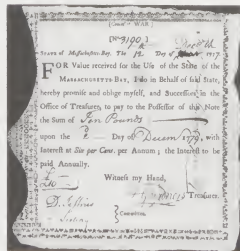 No 3100
STATE of Massachusetts-Bay, The Day of 1777.
FOR Value received for the Use of the State of the
MASSACHUSETTS-BAY, I do in Behalf of said State,
hereby promise and oblige myself, and Successors in the
Office of Treasurer, to pay to the Possessor of this Note
the Sum of Ten Pounds
upon the Day of Decemr 1779, with
Interest at Six per Cent. per Annum; the Interest to be
paid Annually.
Witness my Hand,
£10
Treasurer.
D. Jeffries
Committee.